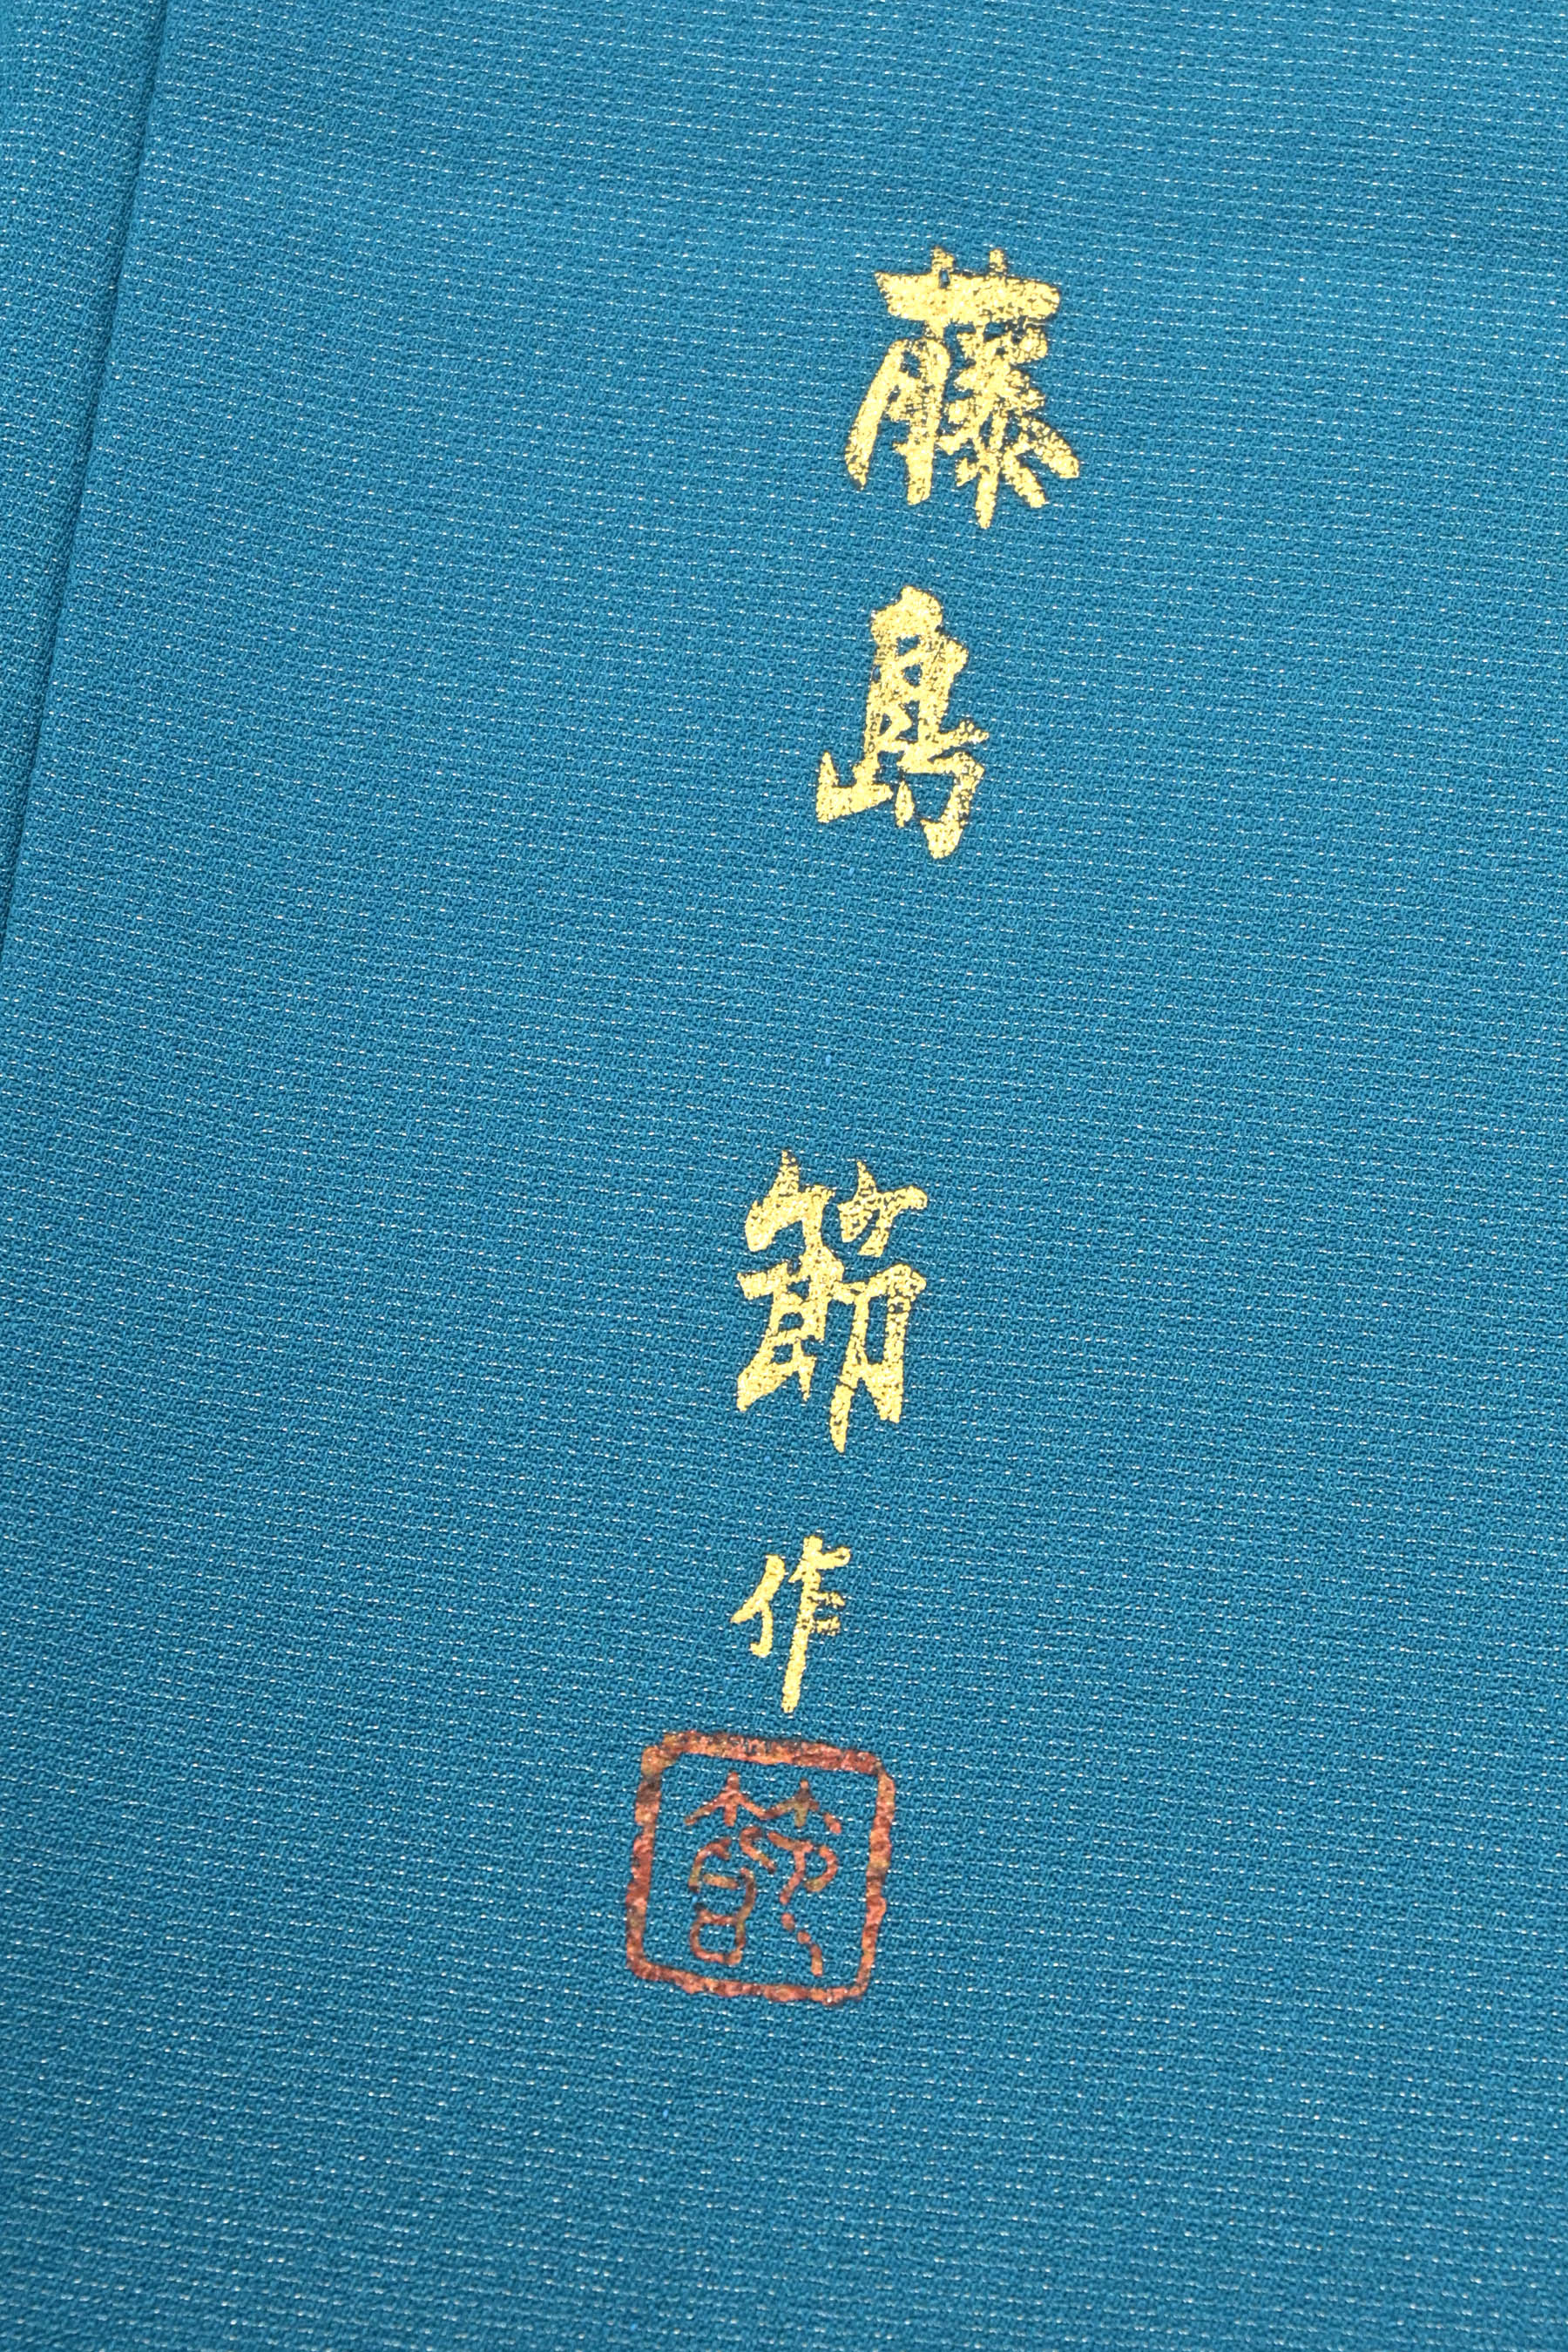 藤島 節作
節